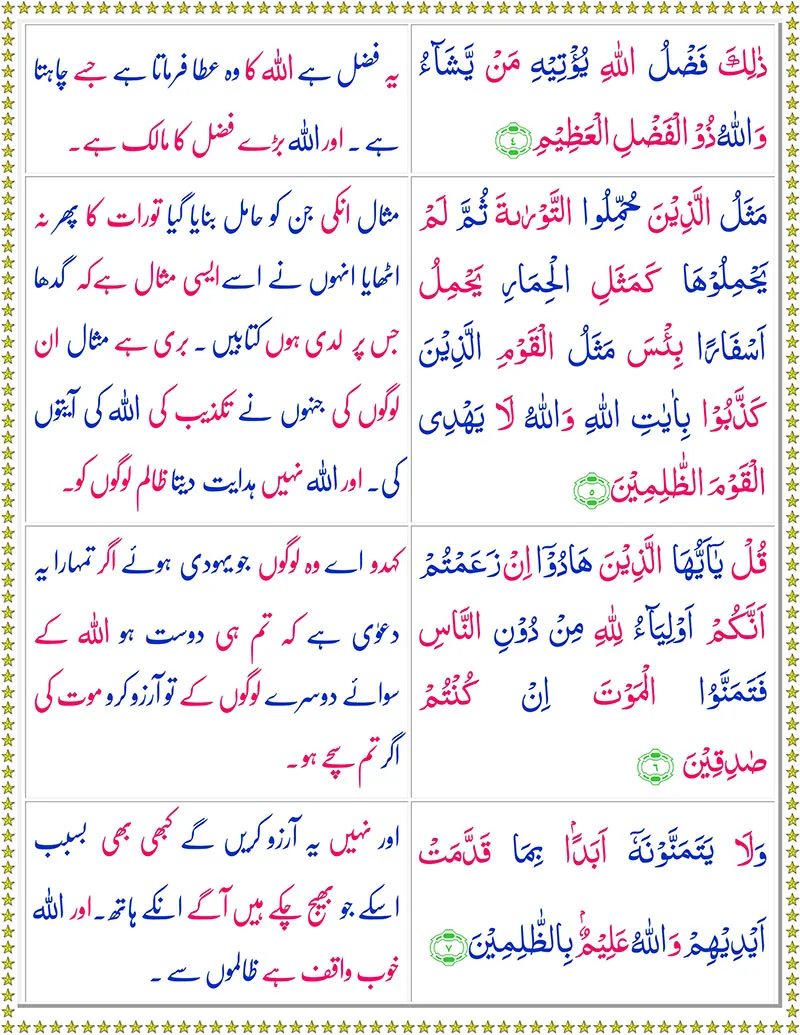 ذٰلِكَ فَضْلُ اللهِ يُؤْتِيْهِ مَنْ يَّشَآءُ
وَاللهُ ذُو الْفَضْلِ الْعَظِيْمِ ۝٤
یہ فضل ہے اللہ کا وہ عطا فرماتا ہے جسے چاہتا
ہے ۔ اور اللہ بڑے فضل کا مالک ہے۔
مَثَلُ الَّذِيْنَ حُمِّلُوا التَّوْرٰىةَ ثُمَّ لَمْ
يَحْمِلُوْهَا كَمَثَلِ الْحِمَارِ يَحْمِلُ
اَسْفَارًا بِئْسَ مَثَلُ الْقَوْمِ الَّذِيْنَ
كَذَّبُوْا بِاٰيٰتِ اللهِ وَاللهُ لَا يَهْدِى
الْقَوْمَ الظّٰلِمِيْنَ ۝٥
مثال انکی جن کو حامل بنایا گیا تورات کا پھر نہ
اٹھایا انہوں نے اسے ایسی مثال ہےکہ گدھا
جس پر لدی ہوں کتابیں ۔ بری ہے مثال ان
لوگوں کی جنہوں نے تکذیب کی اللہ کی آیتوں
کی۔ اور اللہ نہیں ہدایت دیتا ظالم لوگوں کو۔
قُلْ يٰٓاَيُّهَا الَّذِيْنَ هَادُوْٓا اِنْ زَعَمْتُمْ
اَنَّكُمْ اَوْلِيَآءُ لِلّٰهِ مِنْ دُوْنِ النَّاسِ
فَتَمَنَّوُا الْمَوْتَ اِنْ كُنْتُمْ
صٰدِقِيْنَ ۝٦
کہدو اے وہ لوگوں جو یہودی ہوئے اگر تمہارا یہ
دعوٰی ہے کہ تم ہی دوست ہو اللہ کے
سوائے دوسرے لوگوں کے تو آرزو کرو موت کی
اگر تم سچے ہو۔
وَلَا يَتَمَنَّوْنَهٗٓ اَبَدًاۢ بِمَا قَدَّمَتْ
اَيْدِيْهِمْ وَاللهُ عَلِيْمٌۢ بِالظّٰلِمِيْنَ ۝٧
اور نہیں یہ آرزو کریں گے کبھی بھی بسبب
اسکے جو بھیج چکے ہیں آگے انکے ہاتھ۔ اور اللہ
خوب واقف ہے ظالموں سے ۔